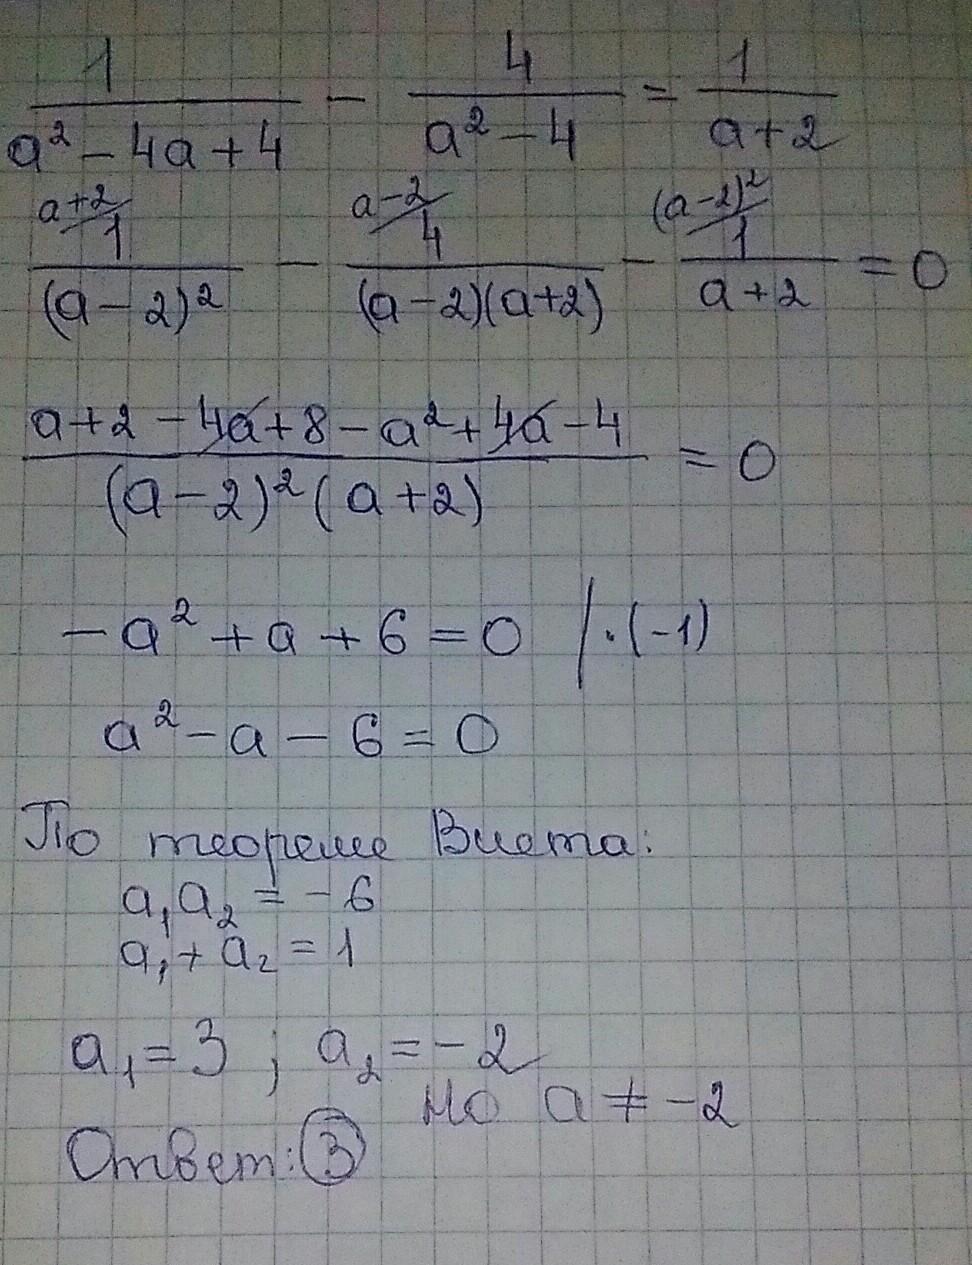 1/(a² - 4a + 4) - 4/(a² - 4) = 1/(a + 2)
a+2/ a-2/ (a-2)²/
1/(a - 2)² - 4/((a - 2)(a + 2)) - 1/(a + 2) = 0
(a + 2 - 4a + 8 - a² + 4a - 4)/((a - 2)² (a + 2)) = 0
- a² + a + 6 = 0 /·(-1)
a² - a - 6 = 0
По теореме Виета:
a₁a₂ = -6
a₁ + a₂ = 1
a₁ = 3 ; a₂ = -2
но a ≠ -2
Ответ: 3